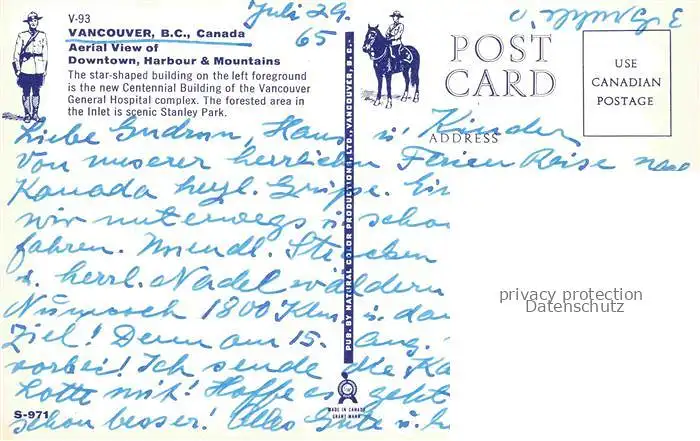 V-93
VANCOUVER, B.C., Canada
Aerial View of
Downtown, Harbour & Mountains
The star-shaped building on the left foreground
is the new Centennial Building of the Vancouver
General Hospital complex. The forested area in
the Inlet is scenic Stanley Park.
Juli 29.
65
POST
CARD
ADDRESS
USE
CANADIAN
POSTAGE
Liebe Gudrun, Hans u. Kinder
Von unserer herrlichen Ferien Reise nach
Kanada herzl. Grüsse.
wir unterwegs u. scho
fahren. Unendl. Strecken
u. herrl. Nadelwäldern
Nun noch 1800 Klm u. dan
Ziel! Denn am 15. Aug.
vorbei! Ich sende die Ka
Lotte mit! Hoffe es geht
schon besser! Alles Gute u.
PUB. BY NATURAL COLOR PRODUCTIONS LTD., VANCOUVER, B. C.
S-971
MADE IN CANADA
GRANT MANN
privacy protection
Datenschutz